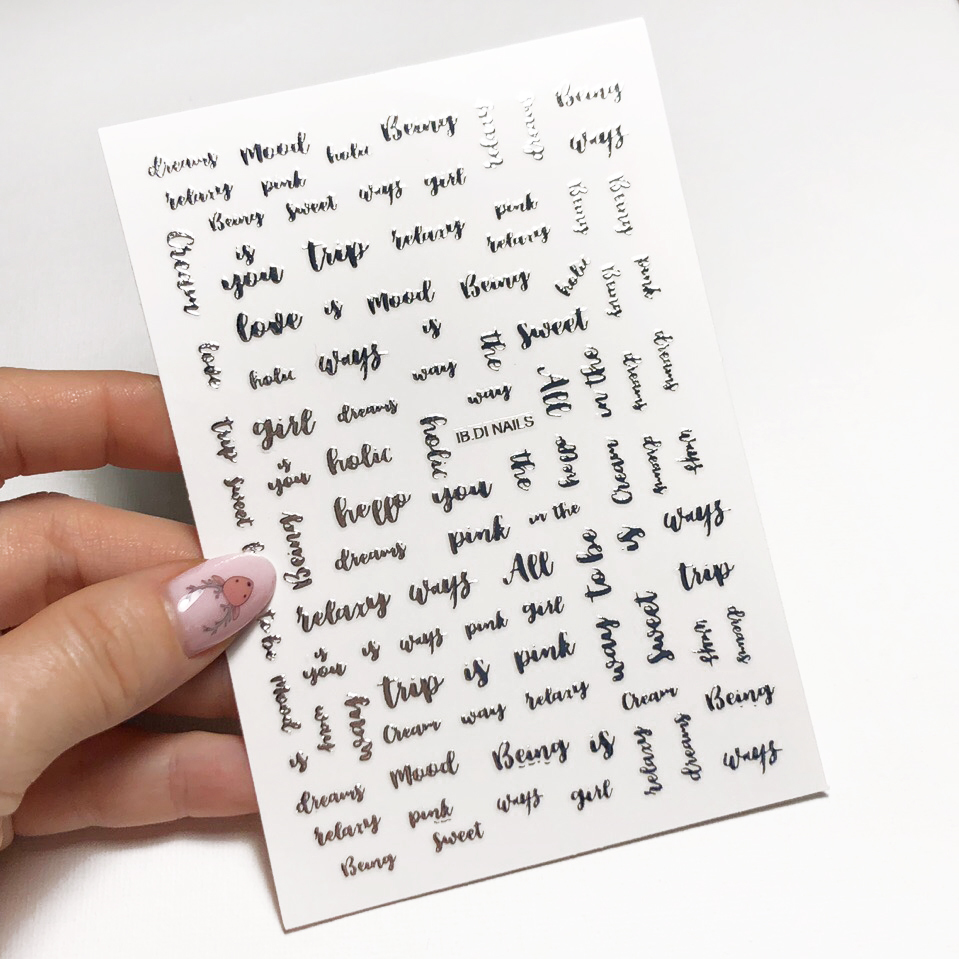 dreams Mood holic Being relaxy dreams Being
relaxy pink ways
Being sweet ways girl
Cream is you trip relaxy pink relaxy Being Being
love is Mood Being holic Being pink
look holic ways is way the Sweet
girl dreams way All in the dreams dreams
trip is you holic holic IB.DI NAILS
sweet hello you the hello Cream dreams
Being dreams pink in the is ways
relaxy ways All way to be trip
to be is you is ways pink girl sweet dreams
Mood way trip is pink
is Cream way relaxy Cream Being
dreams Mood Being is relaxy dreams ways
relaxy pink ways girl
Being sweet